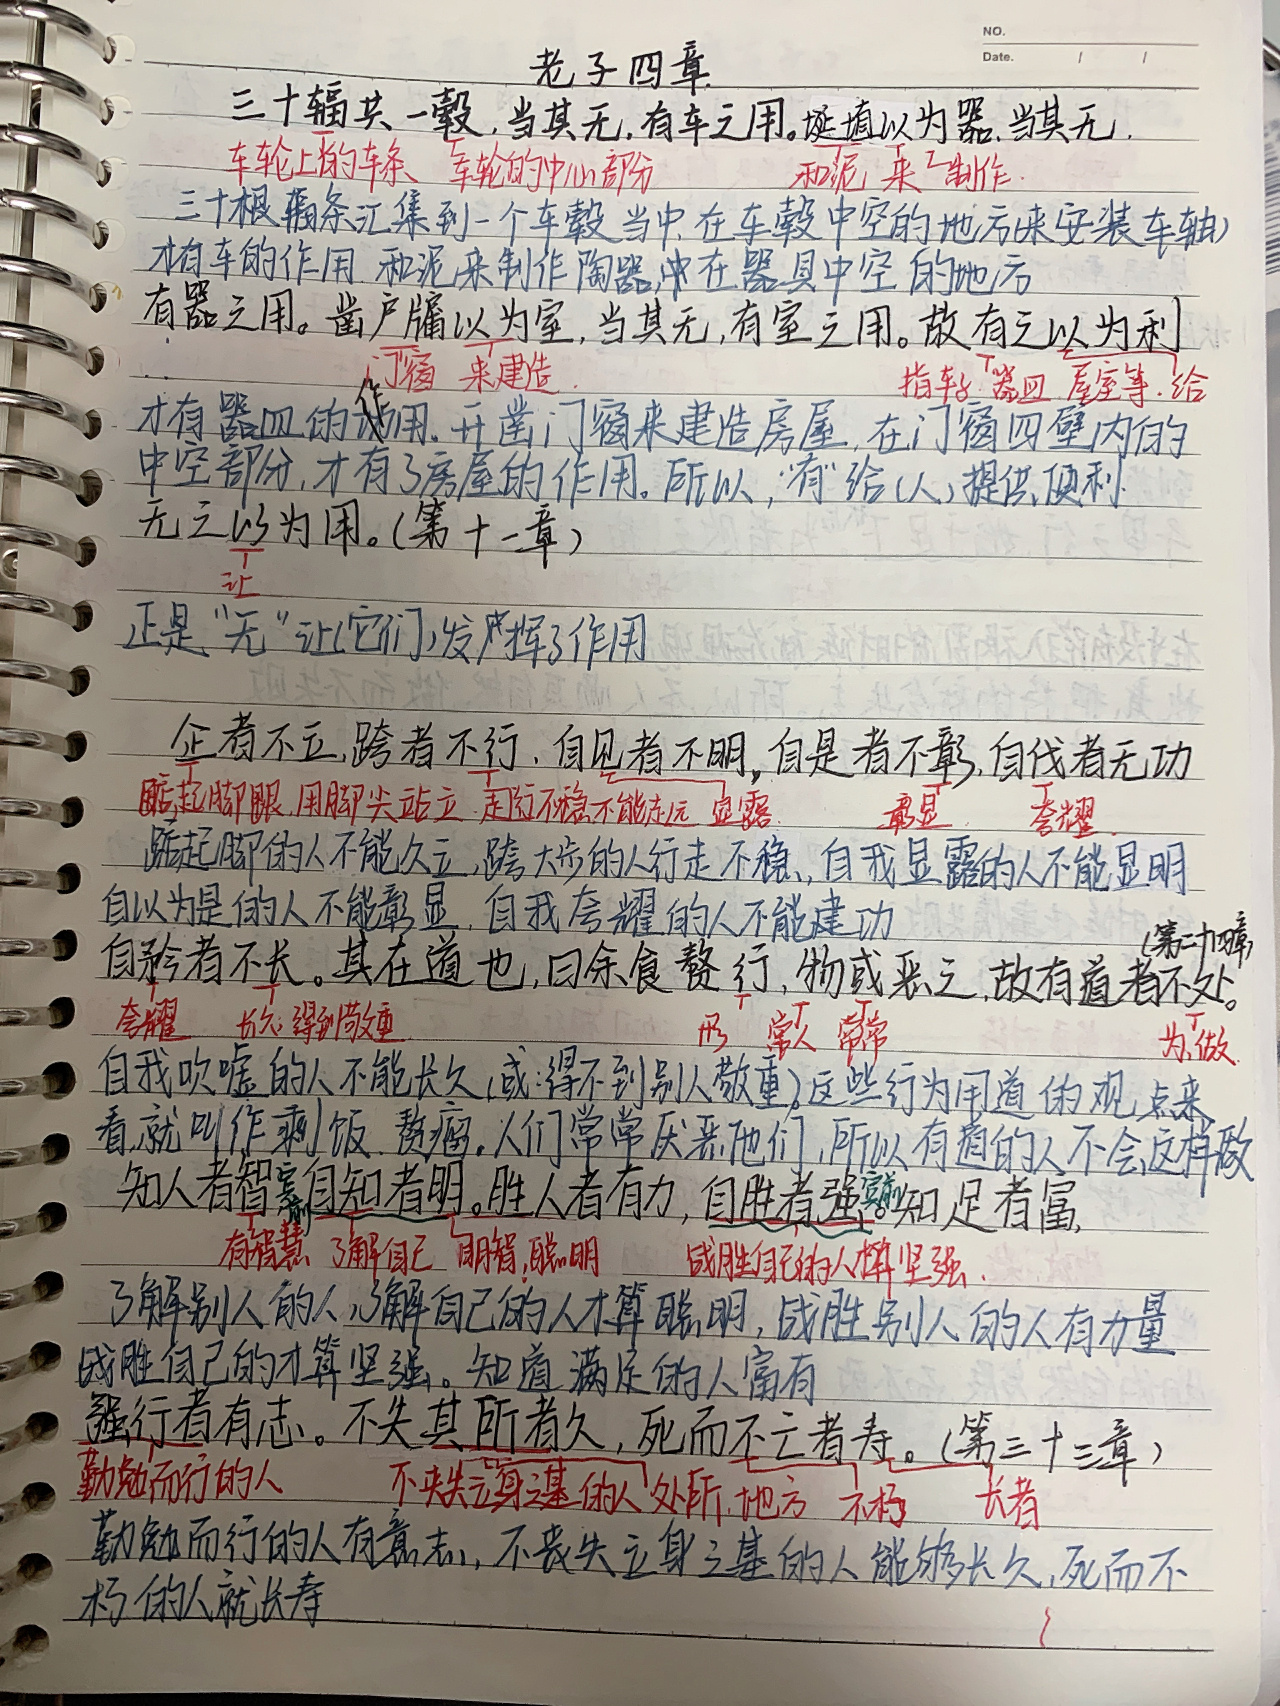 NO.
Date. / /
老子四章
三十辐共一毂,当其无,有车之用。埏埴以为器,当其无,
车轮上的车条 车轮的中心部分 和泥 来 制作
三十根辐条汇集到一个车毂当中,在车毂中空的地方(来安装车轴)
才有车的作用 和泥来制作陶器,在器具中空的地方
有器之用。凿户牖以为室,当其无,有室之用。故有之以为利
门窗 来建造 指车子 器皿 屋室等 给
才有器皿的作用。开凿门窗来建造房屋,在门窗四壁内的
中空部分,才有了房屋的作用。所以,“有”给(人)提供便利
无之以为用。(第十一章)
让
正是“无”让(它们)发挥了作用
企者不立,跨者不行,自见者不明,自是者不彰,自伐者无功
踮起脚跟,用脚尖站立 走行不稳不能走远 显露 彰显 夸耀
踮起脚的人不能久立,跨大步的人行走不稳,自我显露的人不能显明
自以为是的人不能彰显,自我夸耀的人不能建功
(第二十四章)
自矜者不长。其在道也,曰余食赘行,物或恶之,故有道者不处。
夸耀 长久;得到敬重 形 常人 常常 为,做
自我吹嘘的人不能长久(或:得不到别人敬重)这些行为用道的观点来
看,就叫作剩饭 赘瘤。人们常常厌恶他们,所以有道的人不会这样做
知人者智宾前自知者明。胜人者有力,自胜者强宾前。知足者富,
有智慧 了解自己 明智,聪明 战胜自己的人 坚强
了解别人的人,了解自己的人才算聪明,战胜别人的人有力量
战胜自己的才算坚强。知道满足的人富有
强行者有志。不失其所者久,死而不亡者寿。(第三十三章)
勤勉而行的人 不丧失立身之基的人 处所,地方 不朽 长者
勤勉而行的人有意志,不丧失立身之基的人能够长久,死而不
朽的人就长寿